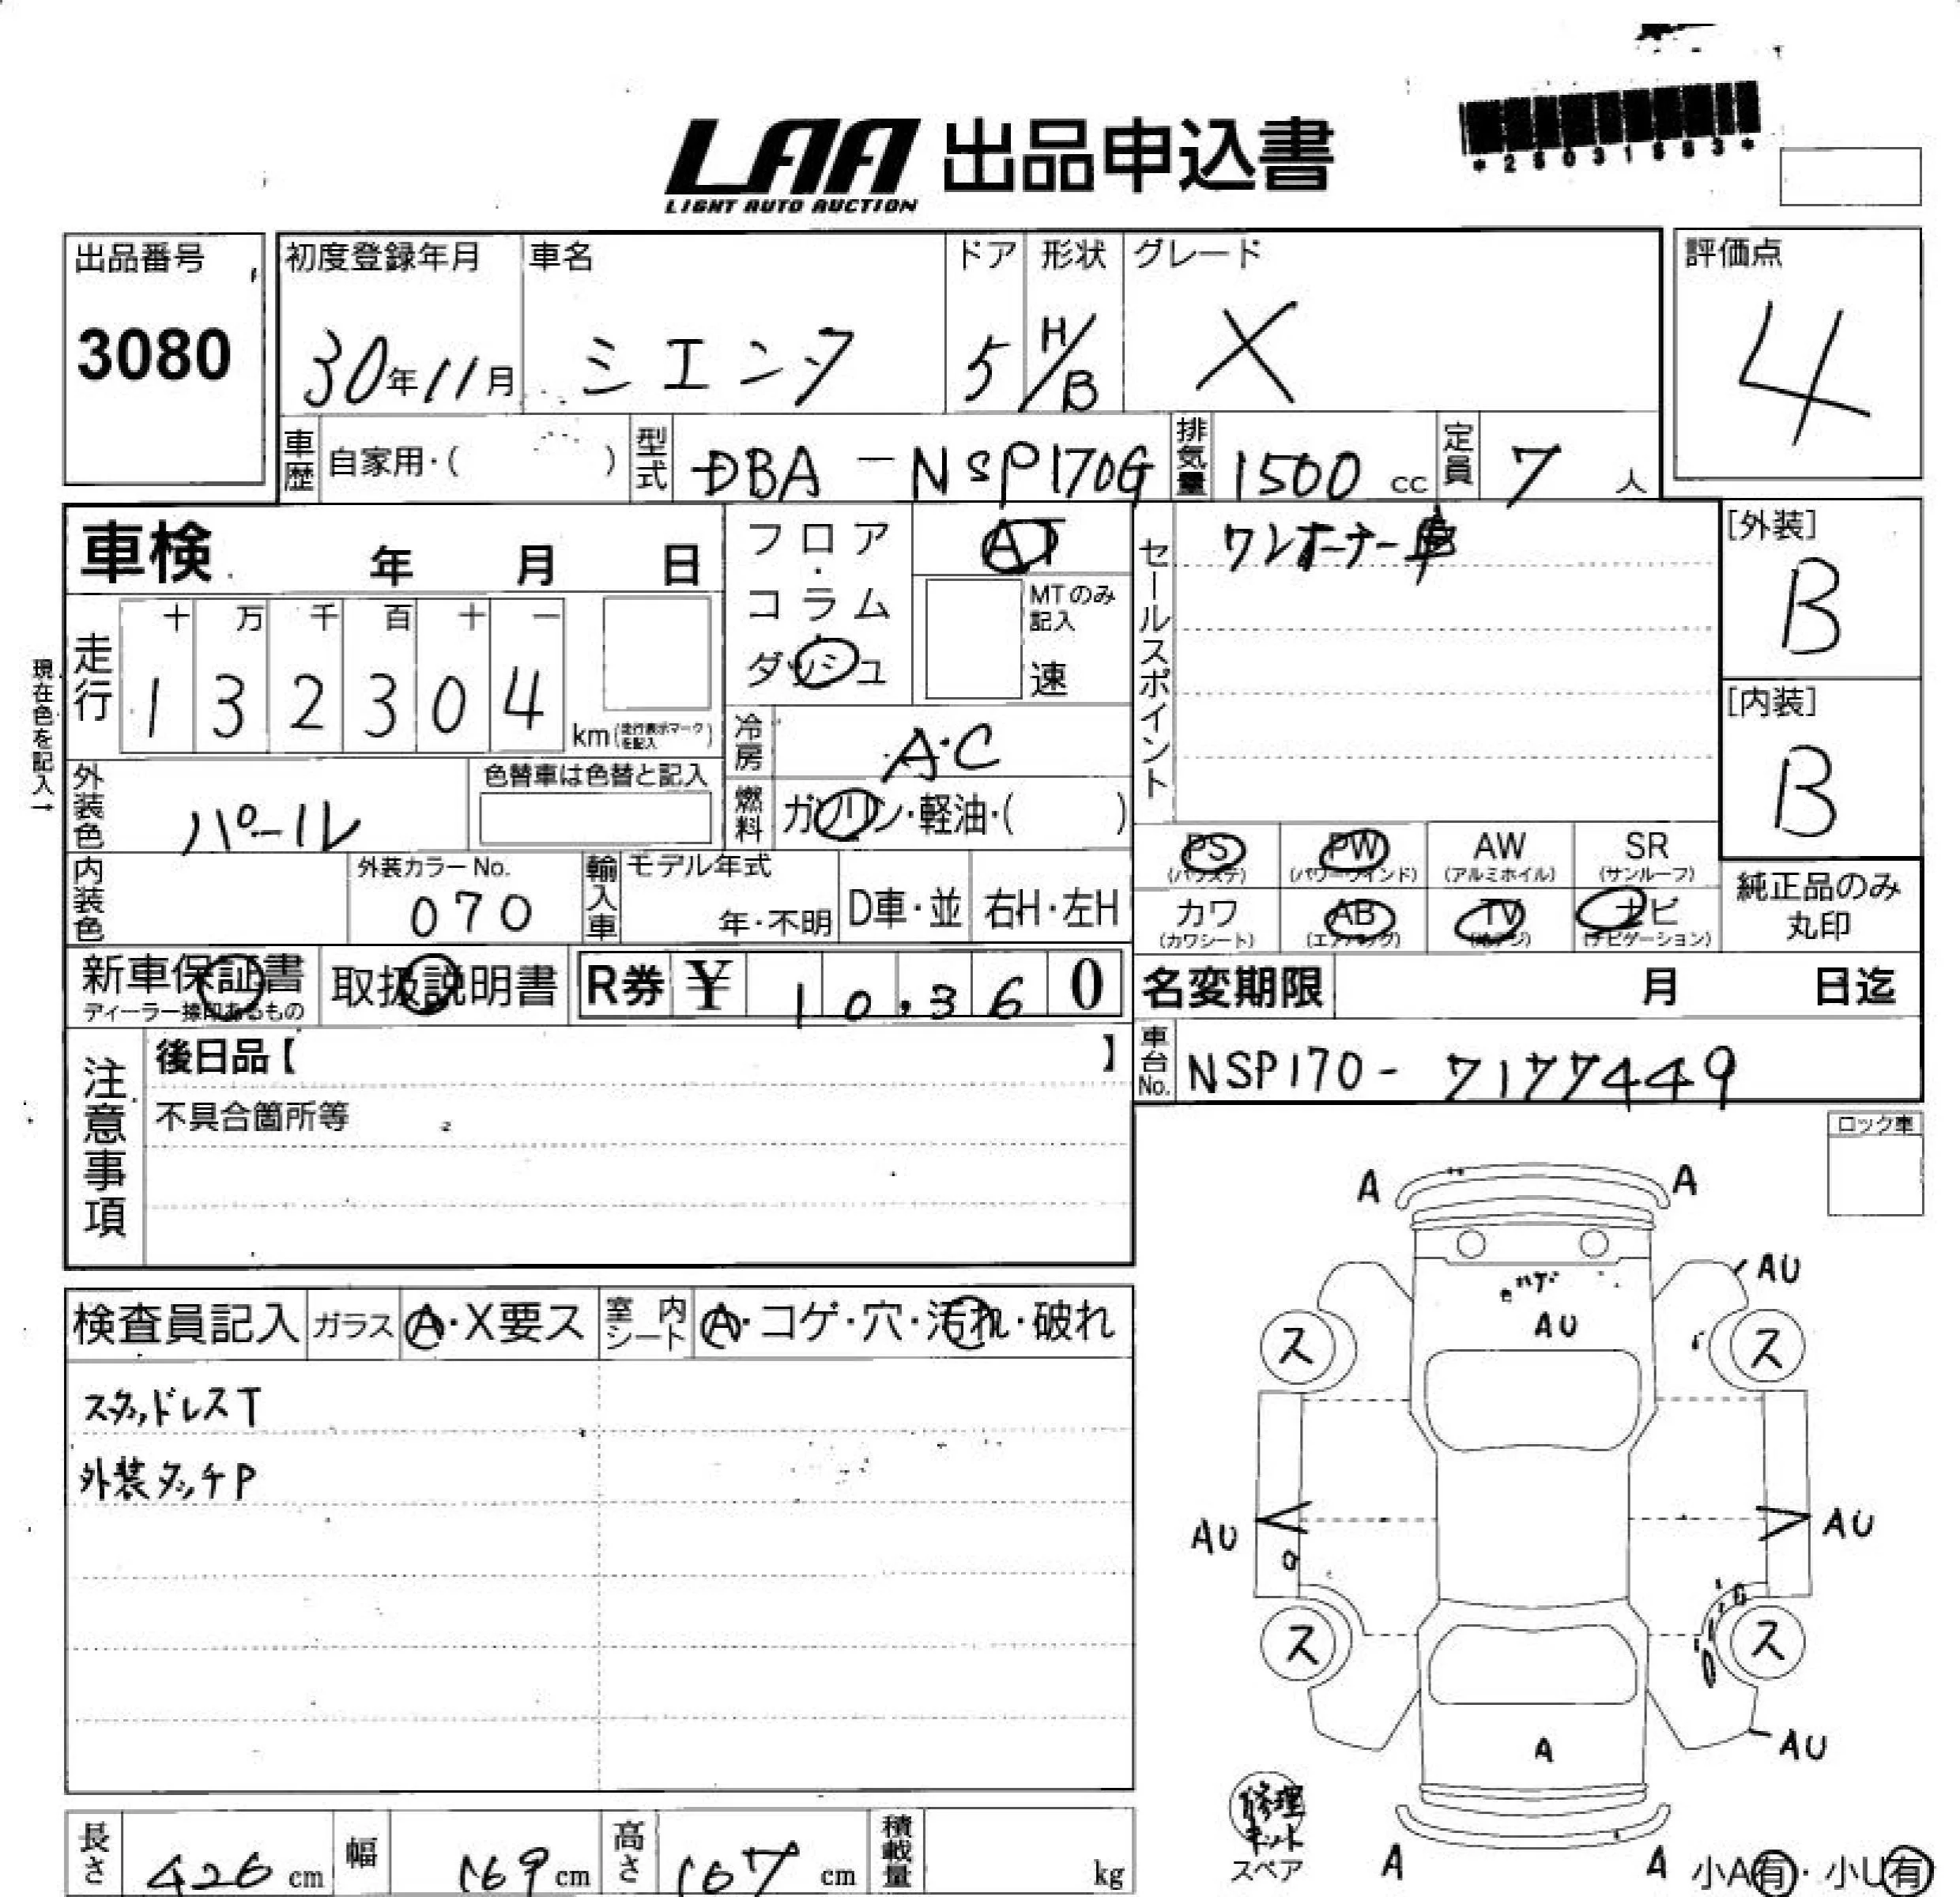 LAA 出品申込書
LIGHT AUTO AUCTION
出品番号
3080
初度登録年月
30年11月
車名
シエンタ
ドア
5
形状
H/B
グレード
X
評価点
4
車歴 自家用・( )
型式 DBA-NSP170G
排気量 1500 cc
定員 7 人
車検 年 月 日
走行
十 万 千 百 十 一
1 3 2 3 0 4
km(走行表示マークを記入)
現在色を記入→
フロア・コラム・ダッシュ
AT
MTのみ記入
速
セールスポイント
ワンオーナー車
[外装]
B
[内装]
B
冷房 A・C
燃料 ガソリン・軽油・( )
外装色 パール
色替車は色替と記入
内装色
外装カラーNo.
070
輸入車
モデル年式
年・不明
D車・並
右H・左H
PS (パワステ)
PW (パワーウインド)
AW (アルミホイル)
SR (サンルーフ)
カワ (カワシート)
AB (エアバッグ)
TV (地デジ)
ナビ (ナビゲーション)
純正品のみ
丸印
新車保証書
ディーラー捺印あるもの
取扱説明書
R券 ¥ 10,360
名変期限 月 日迄
注意事項
後日品【 】
不具合箇所等
車台No. NSP170-7177449
ロック車
検査員記入
ガラス A・X要ス
室内シート A・コゲ・穴・汚れ・破れ
スタッドレスT
外装タッチP
A A
AU
AU
ス ス
AU AU
ス ス
AU
A
修理キット
スペア
A A
小A有・小U有
長さ 426 cm
幅 169 cm
高さ 167 cm
積載量 kg